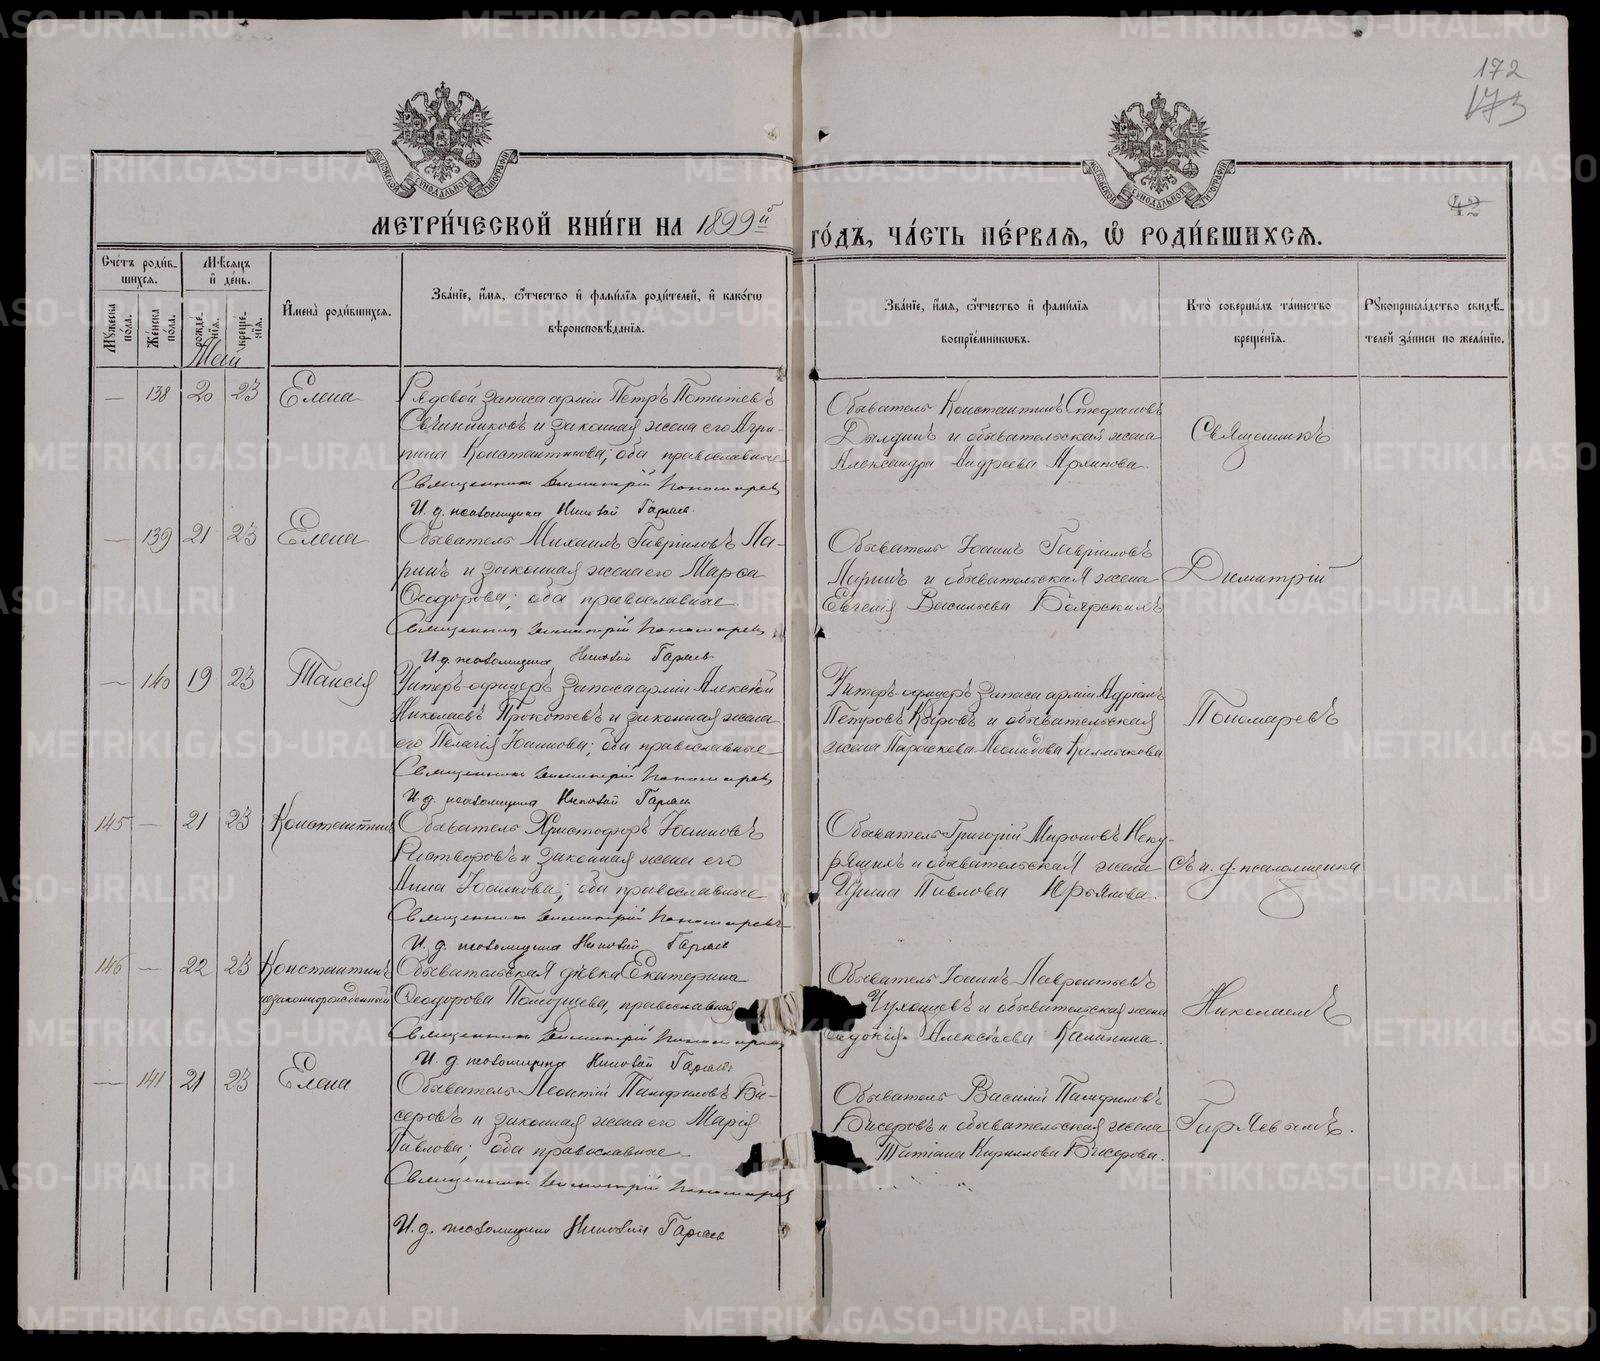 172
173
42
МЕТРИ́ЧЕСКОЙ КНИ́ГИ НА 1899й
ГО́ДЪ, ЧА́СТЬ ПЕ́РВАЯ, Ѽ РОДИ́ВШИХСЯ.
Счетъ роди́в-
шихся.
Мѣсяцъ
и̑ де́нь.
И̑мена̀ роди́вшихся.
Зва́нїе, и̑́мя, ѻ̑́тчество и̑ фами́лїя роди́телей, и̑ како́гѡ
вѣроисповѣ́данїя.
Мꙋ́жеска по́ла.
Же́нска по́ла.
рожде́нїя.
креще́нїя.
Зва́нїе, и̑́мя, ѻ̑́тчество и̑ фами́лїя
воспрїе́мникѡвъ.
Кто̀ соверша́лъ та́инство
креще́нїя.
Рꙋкоприкла́дство свидѣ́-
телей за́писи по жела́нїю.
Май
— 138 20 23 Елена
Рядовой запаса арміи Петръ
Овчинниковъ и законная жена его Агри-
пина Константинова; оба православные
Священникъ Димитрій Пономаревъ
И. д. псаломщика Николай Гаряевъ
Обыватель Константинъ Стефановъ
Дылдинъ и обывательская жена
Александра Андреева Архипова.
Священникъ
— 139 21 23 Елена
Обыватель Михаилъ Гавріиловъ Ла-
ринъ и законная жена его Марѳа
Ѳеодорова; оба православные
Священникъ Димитрій Пономаревъ
И. д. псаломщика Николай Гаряевъ
Обыватель Іоаннъ Гавріиловъ
Ларинъ и обывательская жена
Евгенія Васильева Боярскихъ
Димитрій
— 140 19 23 Таисія
Унтеръ-офицеръ запаса арміи Алексѣй
Николаевъ Прокопьевъ и законная жена
его Пелагія Іоаннова; оба православные
Священникъ Димитрій Пономаревъ
И. д. псаломщика Николай Гаряевъ
Унтеръ-офицеръ запаса арміи Адріанъ
Петровъ Кыровъ и обывательская
жена Параскева Леонидова Калмыкова
Пономаревъ
145 — 21 23 Константинъ
Обыватель Христофоръ Іоанновъ
и законная жена его
Анна Іоаннова; оба православные
Священникъ Димитрій Пономаревъ
И. д. псаломщика Николай Гаряевъ
Обыватель Григорій Мироновъ Неку-
ряшихъ и обывательская жена
Ирина Павлова Юрьянова.
Съ и. д. псаломщика
146 — 22 23 Константинъ
незаконнорожденный
Обывательская дѣвка Екатерина
Ѳеодорова Поморцева, православная
Священникъ Димитрій Пономаревъ
И. д. псаломщика Николай Гаряевъ
Обыватель Іоаннъ Лаврентьевъ
и обывательская жена
Евдокія Алексѣева Калинина.
Николаемъ
— 141 21 23 Елена
Обыватель Леонтій Памфиловъ Би-
серовъ и законная жена его Марія
Павлова; оба православные
Священникъ Димитрій Пономаревъ
И. д. псаломщика Николай Гаряевъ
Обыватель Василій Памфиловъ
Бисеровъ и обывательская жена
Татіана Кириллова Бисерова.
Гаряевымъ.